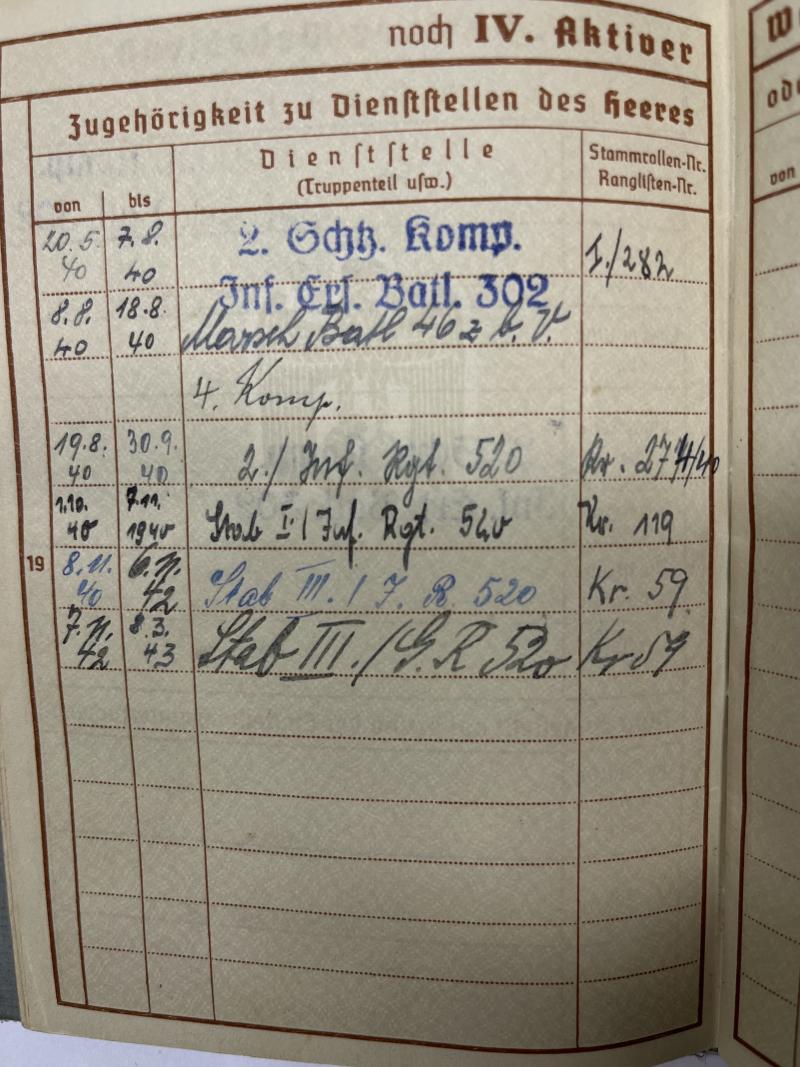 noch IV. Aktiver
Zugehörigkeit zu Dienststellen des Heeres
von bis
Dienststelle
(Truppenteil usw.)
Stammrollen-Nr.
Ranglisten-Nr.
20.5. 40 7.8. 40
2. Schtz. Komp.
Inf. Ers. Batl. 302
I./282
8.8. 40 18.8. 40 Marsch Batl 46 z. b. V.
4. Komp.
19.8. 40 30.9. 40 2./ Inf. Rgt. 520
1.10. 40 7.11. 1940 Stab I./ Inf. Rgt. 520 Kr. 119
19
8.11. 40 6.11. 42 Stab III./ J. R. 520 Kr. 59
7.11. 42 8.3. 43 Stab III./ G. R 520 Kr 59
von